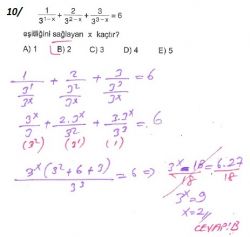 10/ 1/3^(1-x) + 2/3^(2-x) + 3/3^(3-x) = 6
eşitliğini sağlayan x kaçtır?
A) 1 B) 2 C) 3 D) 4 E) 5
1/(3^1/3^x) + 2/(3^2/3^x) + 3/(3^3/3^x) = 6
3^x/3 + 2.3^x/3^2 + 3.3^x/3^3 = 6
(3^2) (3^1) (1)
3^x(3^2+6+3)/3^3 = 6 ⇒ 3^x.18/18 = 6.27/18
3^x = 9
x = 2//
CEVAP:B